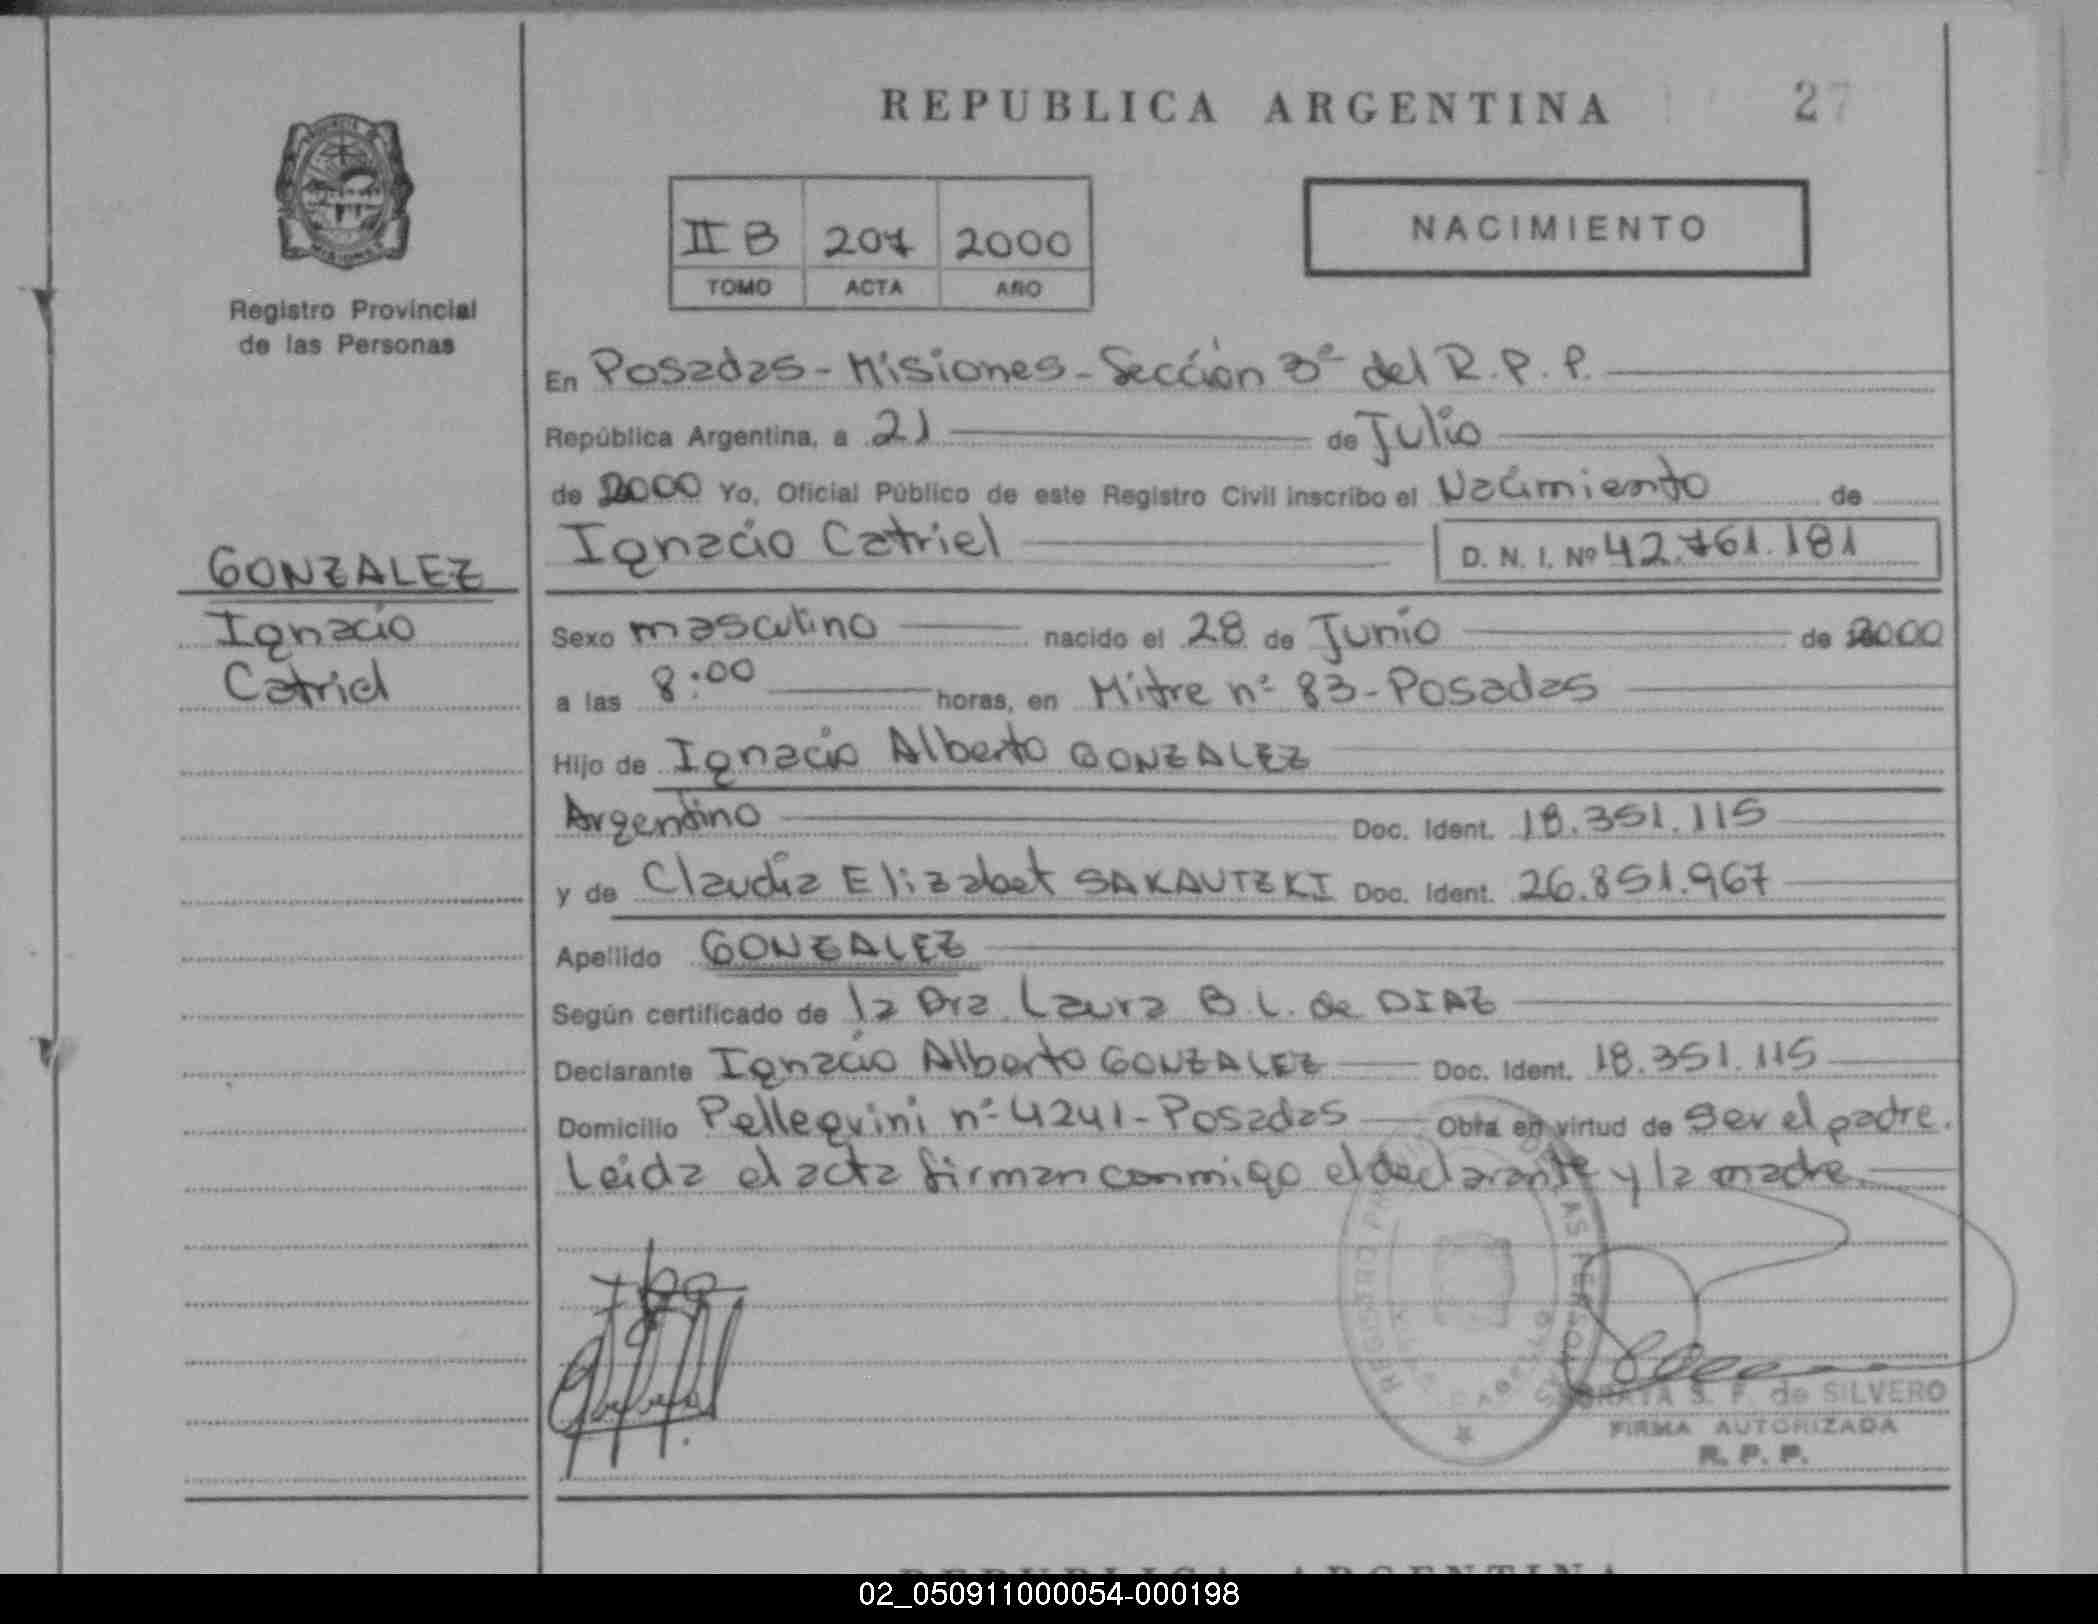 REPUBLICA ARGENTINA
27
II B 207 2000
TOMO ACTA AÑO
NACIMIENTO
Registro Provincial
de las Personas
En Posadas - Misiones - Sección 3ª del R.P.P.
República Argentina, a 21 de Julio
de 2000 Yo, Oficial Público de este Registro Civil inscribo el Nacimiento de
Ignacio Catriel D. N. I. Nº 42.761.181
GONZALEZ
Ignacio
Catriel
Sexo masculino nacido el 28 de Junio de 2000
a las 8:00 horas, en Mitre nº 83 - Posadas
Hijo de Ignacio Alberto GONZALEZ
Argentino Doc. Ident. 18.351.115
y de Claudia Elizabet SAKAUTZKI Doc. Ident. 26.851.967
Apellido GONZALEZ
Según certificado de la Dra. Laura B. L. de DIAZ
Declarante Ignacio Alberto GONZALEZ Doc. Ident. 18.351.115
Domicilio Pellegrini nº 4241 - Posadas Obra en virtud de ser el padre.
Leida el acta firman conmigo el declarante y la madre.
S. F. de SILVERO
FIRMA AUTORIZADA
R. P. P.
REPUBLICA ARGENTINA
02_050911000054-000198